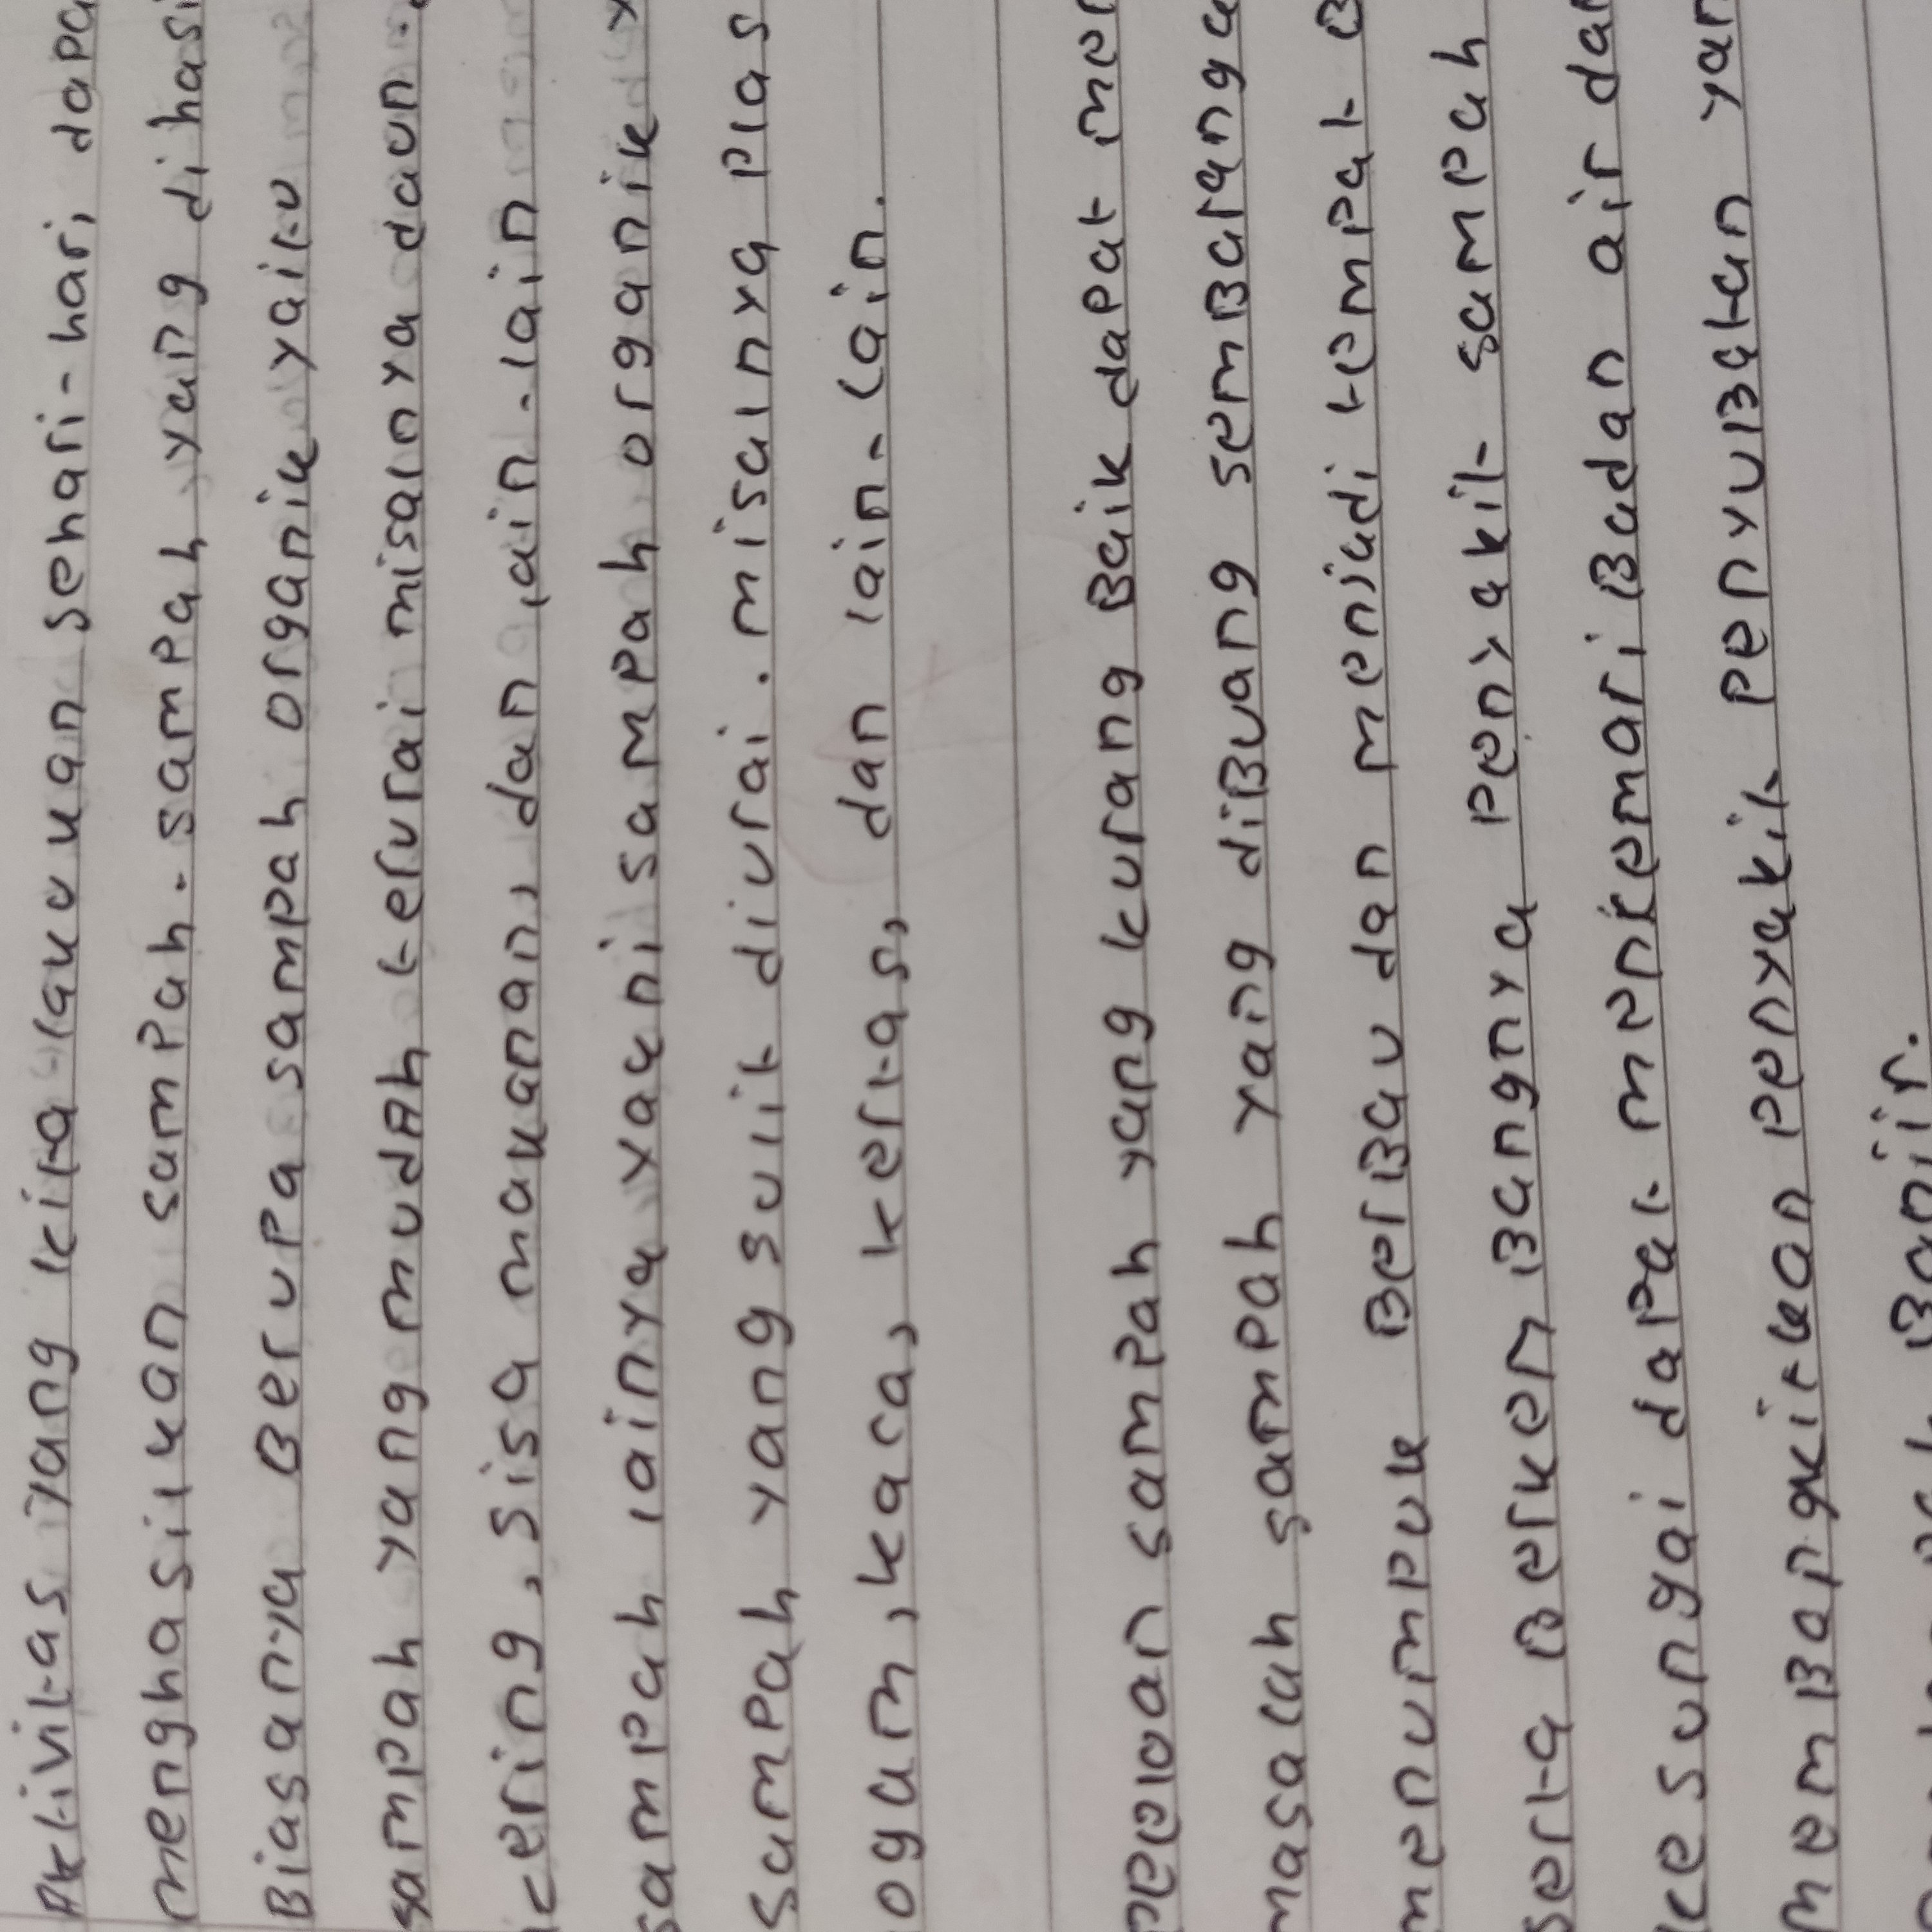 Aktivitas yang kita lakukan sehari-hari, dapa
menghasilkan sampah-sampah yang dihasi
Biasanya Berupa sampah organik yaitu
sampah yang mudah terurai misalnya daun
kering, sisa makanan, dan lain-lain
sampah lainya yakni sampah organik y
sampah yang sulit diurai. misalnya plas
ogam, kaca, kertas, dan lain-lain.
pegeloan sampah yang kurang Baik dapat me
masalah sampah yang diBuang semBaranga
menumpuk BerBau dan menjadi tempat B
serta BerkemBangnya penyakit sampah
ke sungai dapat menkemari Badan air dan
memBangkitkan penyakit penyumBatan yan
Banjir.